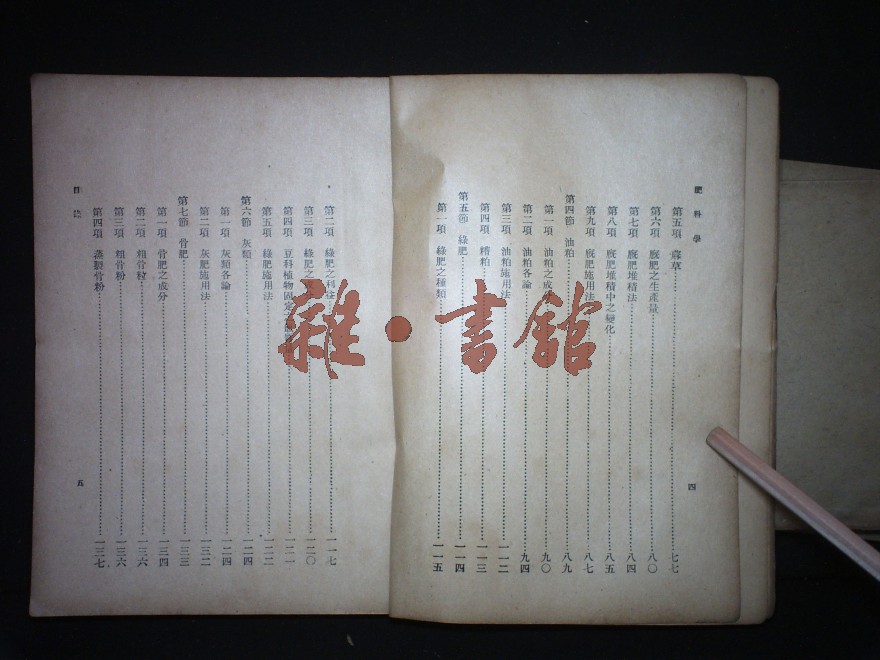 肥料學
第五項 蓐草 七七
第六項 廐肥之生產量 八〇
第七項 廐肥堆積法 八四
第八項 廐肥堆積中之變化 八五
第九項 廐肥施用法 八七
第四節 油粕 八九
第一項 油粕之成 九〇
第二項 油粕各論 九四
第三項 油粕施用法 一一二
第四項 糟粕 一一三
第五節 綠肥 一一四
第一項 綠肥之種類 一一五
四
第二項 綠肥之科 一一七
第三項 綠肥之 一二〇
第四項 豆科植物固定 一二一
第五項 綠肥施用法 一二二
第六節 灰類 一二四
第一項 灰類各論 一二四
第二項 灰肥施用法 一三二
第七節 骨肥 一三三
第一項 骨肥之成分 一三四
第二項 粗骨粒 一三六
第三項 粗骨粉 一三六
第四項 蒸製骨粉 一三七
目
五
雜·書館